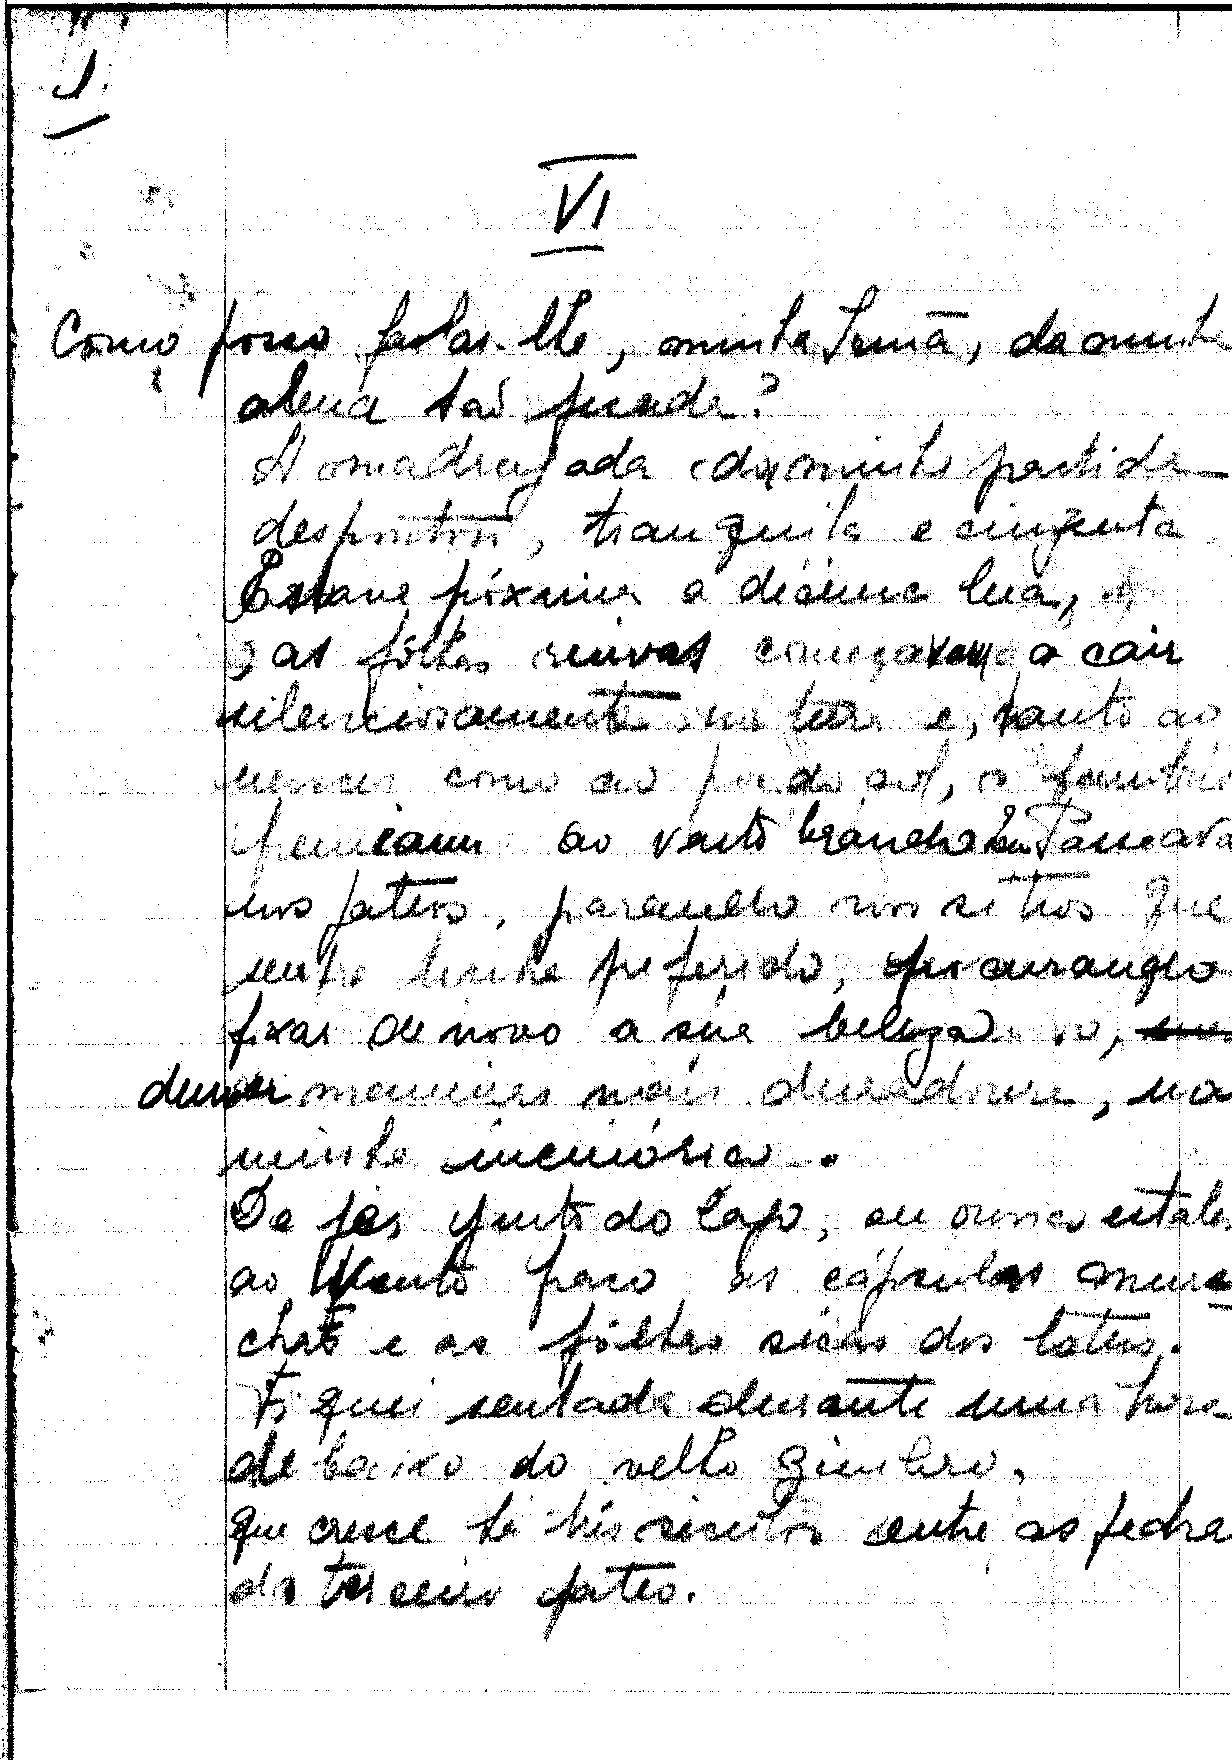 1.
VI
Como posso falar-lhe, minha Irmã, da minha
alma tão pesada?
A madrugada da minha partida
despontou, tranquila e cinzenta.
Estava próxima a décima lua,
as fôlhas ruivas começavam a cair
silenciosamente na terra e, tanto ao
nascer como ao pôr do sol, os
ao vasto Passeava
nos pateos, parando nos sitios que
tinha preferido, procurando
fixar de novo a sua beleza
duma maneira mais duradoura, na
minha memória.
De pés junto do Lago, eu ouvia estalar
ao vento as cápsulas mur
chas e as fôlhas sêcas dos lotus.
Fiquei sentada durante uma hora
debaixo do velho zimbro,
que cresce ha três seculos entre as pedras
do terceiro pateo.